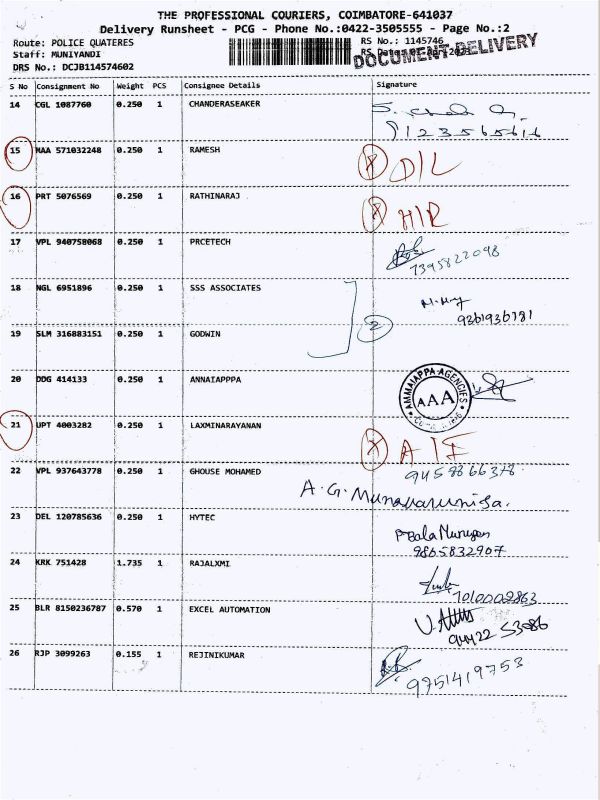 THE PROFESSIONAL COURIERS, COIMBATORE-641037
Delivery Runsheet - PCG - Phone No.:0422-3505555 - Page No.:2
Route: POLICE QUATERES
RS No.: 1145746
Staff: MUNIYANDI
DOCUMENT DELIVERY
DRS No.: DCJB114574602
S No Consignment No Weight PCS Consignee Details Signature
14 CGL 1087760 0.250 1 CHANDERASEAKER
9123565616
15 MAA 571032248 0.250 1 RAMESH X D/L
16 PRT 5076569 0.250 1 RATHINARAJ X H/R
17 VPL 940758068 0.250 1 PRCETECH
7395822098
18 NGL 6951896 0.250 1 SSS ASSOCIATES
9361936781
2
19 SLM 316883151 0.250 1 GODWIN
20 DDG 414133 0.250 1 ANNAIAPPPA
AMMAIAPPA AGENCIES
AAA
21 UPT 4003282 0.250 1 LAXMINARAYANAN X A/F
22 VPL 937643778 0.250 1 GHOUSE MOHAMED
A.G. Munavarunisa.
23 DEL 120785636 0.250 1 HYTEC
Bala Murugan
9865832907
24 KRK 751428 1.735 1 RAJALXMI
7010002863
25 BLR 8150236787 0.570 1 EXCEL AUTOMATION
94422 53086
26 RJP 3099263 0.155 1 REJINIKUMAR
9751419753